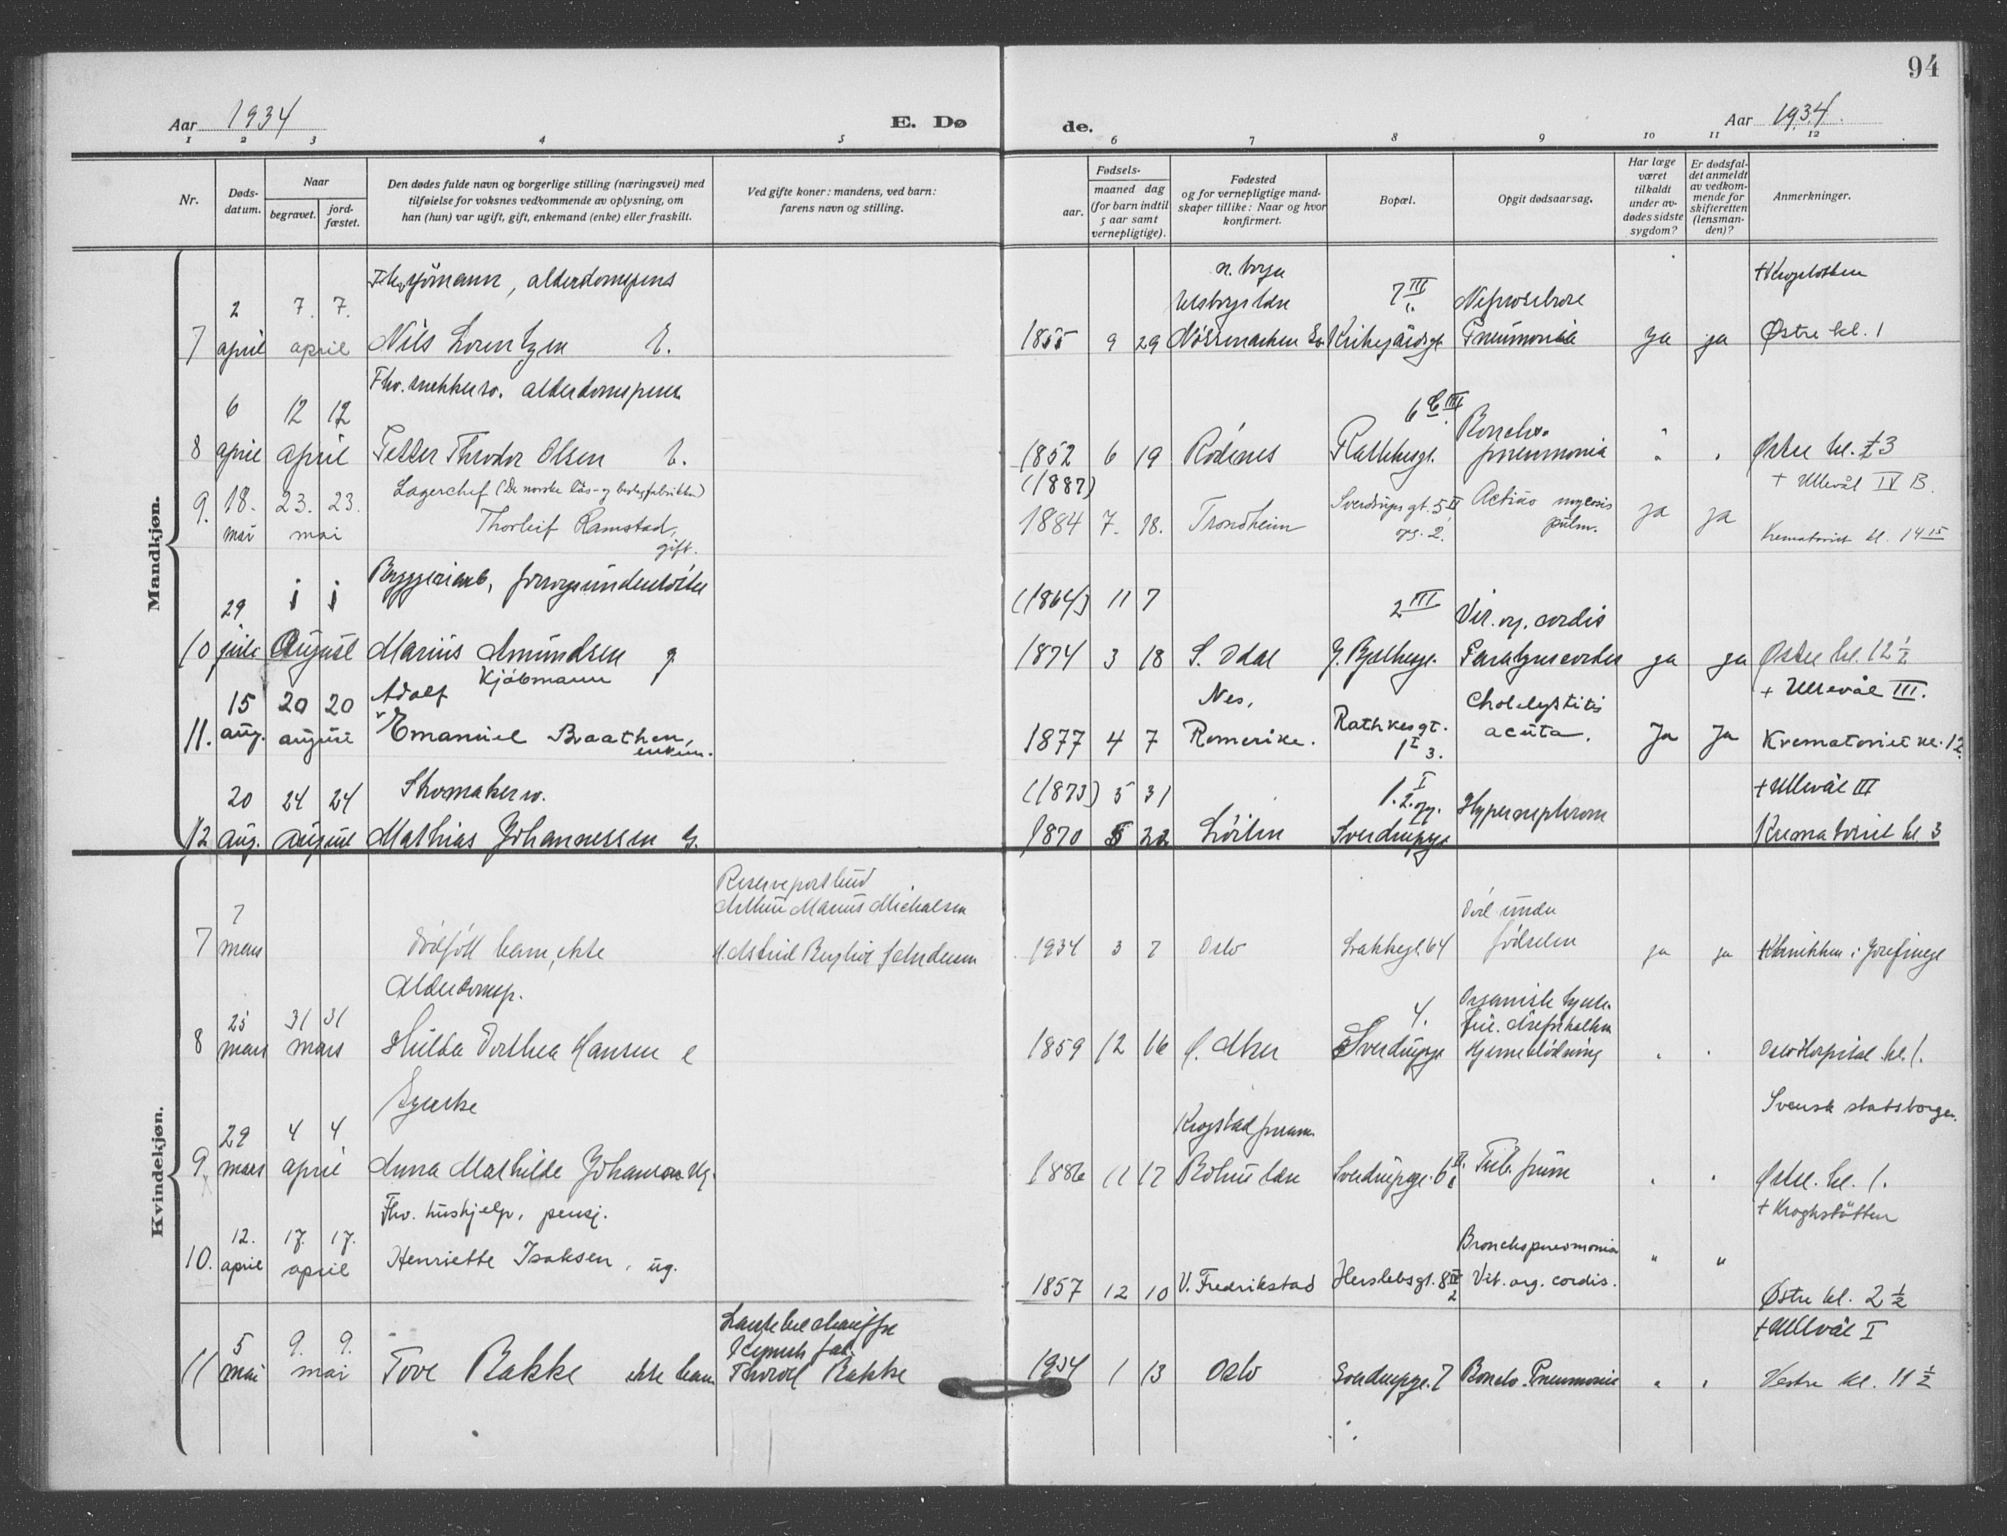 94
Aar 1934
E. Dø
de.
Aar 1934.
1 2 3 4 5 6 7 8 9 10 11 12
Nr.
Døds-
datum.
Naar
begravet.
jord-
fæstet.
Den dødes fulde navn og borgerlige stilling (næringsvei) med
tilføielse for voksnes vedkommende av oplysning, om
han (hun) var ugift, gift, enkemand (enke) eller fraskilt.
Ved gifte koner: mandens, ved barn:
farens navn og stilling.
Fødsels-
aar.
maaned dag
(for barn indtil
5 aar samt
vernepligtige).
Fødested
og for vernepligtige mand-
skaper tillike: Naar og hvor
konfirmert.
Bopæl.
Opgit dødsaarsag.
Har læge
været
tilkaldt
under av-
dødes sidste
sygdom?
Er dødsfal-
det anmeldt
av vedkom-
mende for
skifteretten
(lensman-
den)?
Anmerkninger.
Mandkjøn.
sjömann, alderdomspens
2 7. 7. 7 III Nefrosclerose
7 april april Nils Lorentzen E. 1855 9 29 Kirkegårdsgt. Pneumonia ja ja Østre kl. 1
Fhv. snekkersv. alderdomspens
6 12 12 Broncho-
8 april april Petter Theodor Olsen E. 1852 6 19 Rödenes Rathkesgt. pneumonia " " Østre kl. 3
9. 18. 23. 23. Lagerchef (De norske lås- og beslagfabrikker) (1887) Sverdrupsgt. 5 II Actino mycosis + Ullevål IV B.
mai mai Thorleif Ramstad, 1884 7. 18. Trondheim og. 2. pulm. ja ja Krematoriet kl. 14 15
gift.
Bryggeriarb, forsorgsunderstöttet
29 1 1 (1864) 11 7 2 III Vit. og. cordis
10 juli August Marius Amundsen g. 1874 3 18 S. Odal Paralysis cordis ja ja Østre kl. 12 1/2
15 20 20 Adolf Kjöbmann Nes, Cholelystitis + Ullevål III.
11. aug. august Emanuel Braathen, 1877 4 7 Romerike. Rathkesgt. 1 I 3. acuta. Ja Ja Krematoriet kl. 12
enkem.
20 24 24 Skomakersv. (1873) 5 31 1. I 2. og. Hypernephrom + Ullevål III
12 aug. august Mathias Johannessen E. 1870 5 22 Löiten Sverdrupsgt Krematoriet kl. 3
Kvindekjøn.
Reservepostbud
7 Arthur Marius Michalsen Död under
7 mars dödfött barn, ekte 1934 3 7 Oslo 64 födselen ja ja Klinikken i Josefinegt
Alderdomsp.
25 31 31 4. Organisk hjerte-
8 mars mars Hilda Dorthea Hansen e 1859 12 16 Aker Sverdrupsgt Hjerneblödning " " Oslo Hospital kl. 1.
Syerske Svensk statsborger.
29 4 4 Krogstad
9 mars april Anna Mathilde Johanson ug. 1886 11 17 Bohus län Sverdrupsgt. 6 Tub. pulm " " Østre kl. 1.
Fhv. hushjelp, pensj. + Kroghstötten
12. 17. 17. Bronchopneumonia
10. april april Henriette Isaksen, ug. 1857 12 10 V. Fredrikstad Herslebsgt. 8 IV 2 Vit. org. cordis. " " Østre kl. 2 1/2
5 9. 9. Lastebilchauffør + Ullevål I
11 mai mai Tove Bakke ekte barn Thorolf Bakke 1934 1 13 Oslo Sverdrupsgt. 7 Broncho-Pneumonie " " Vestre kl. 11 1/2